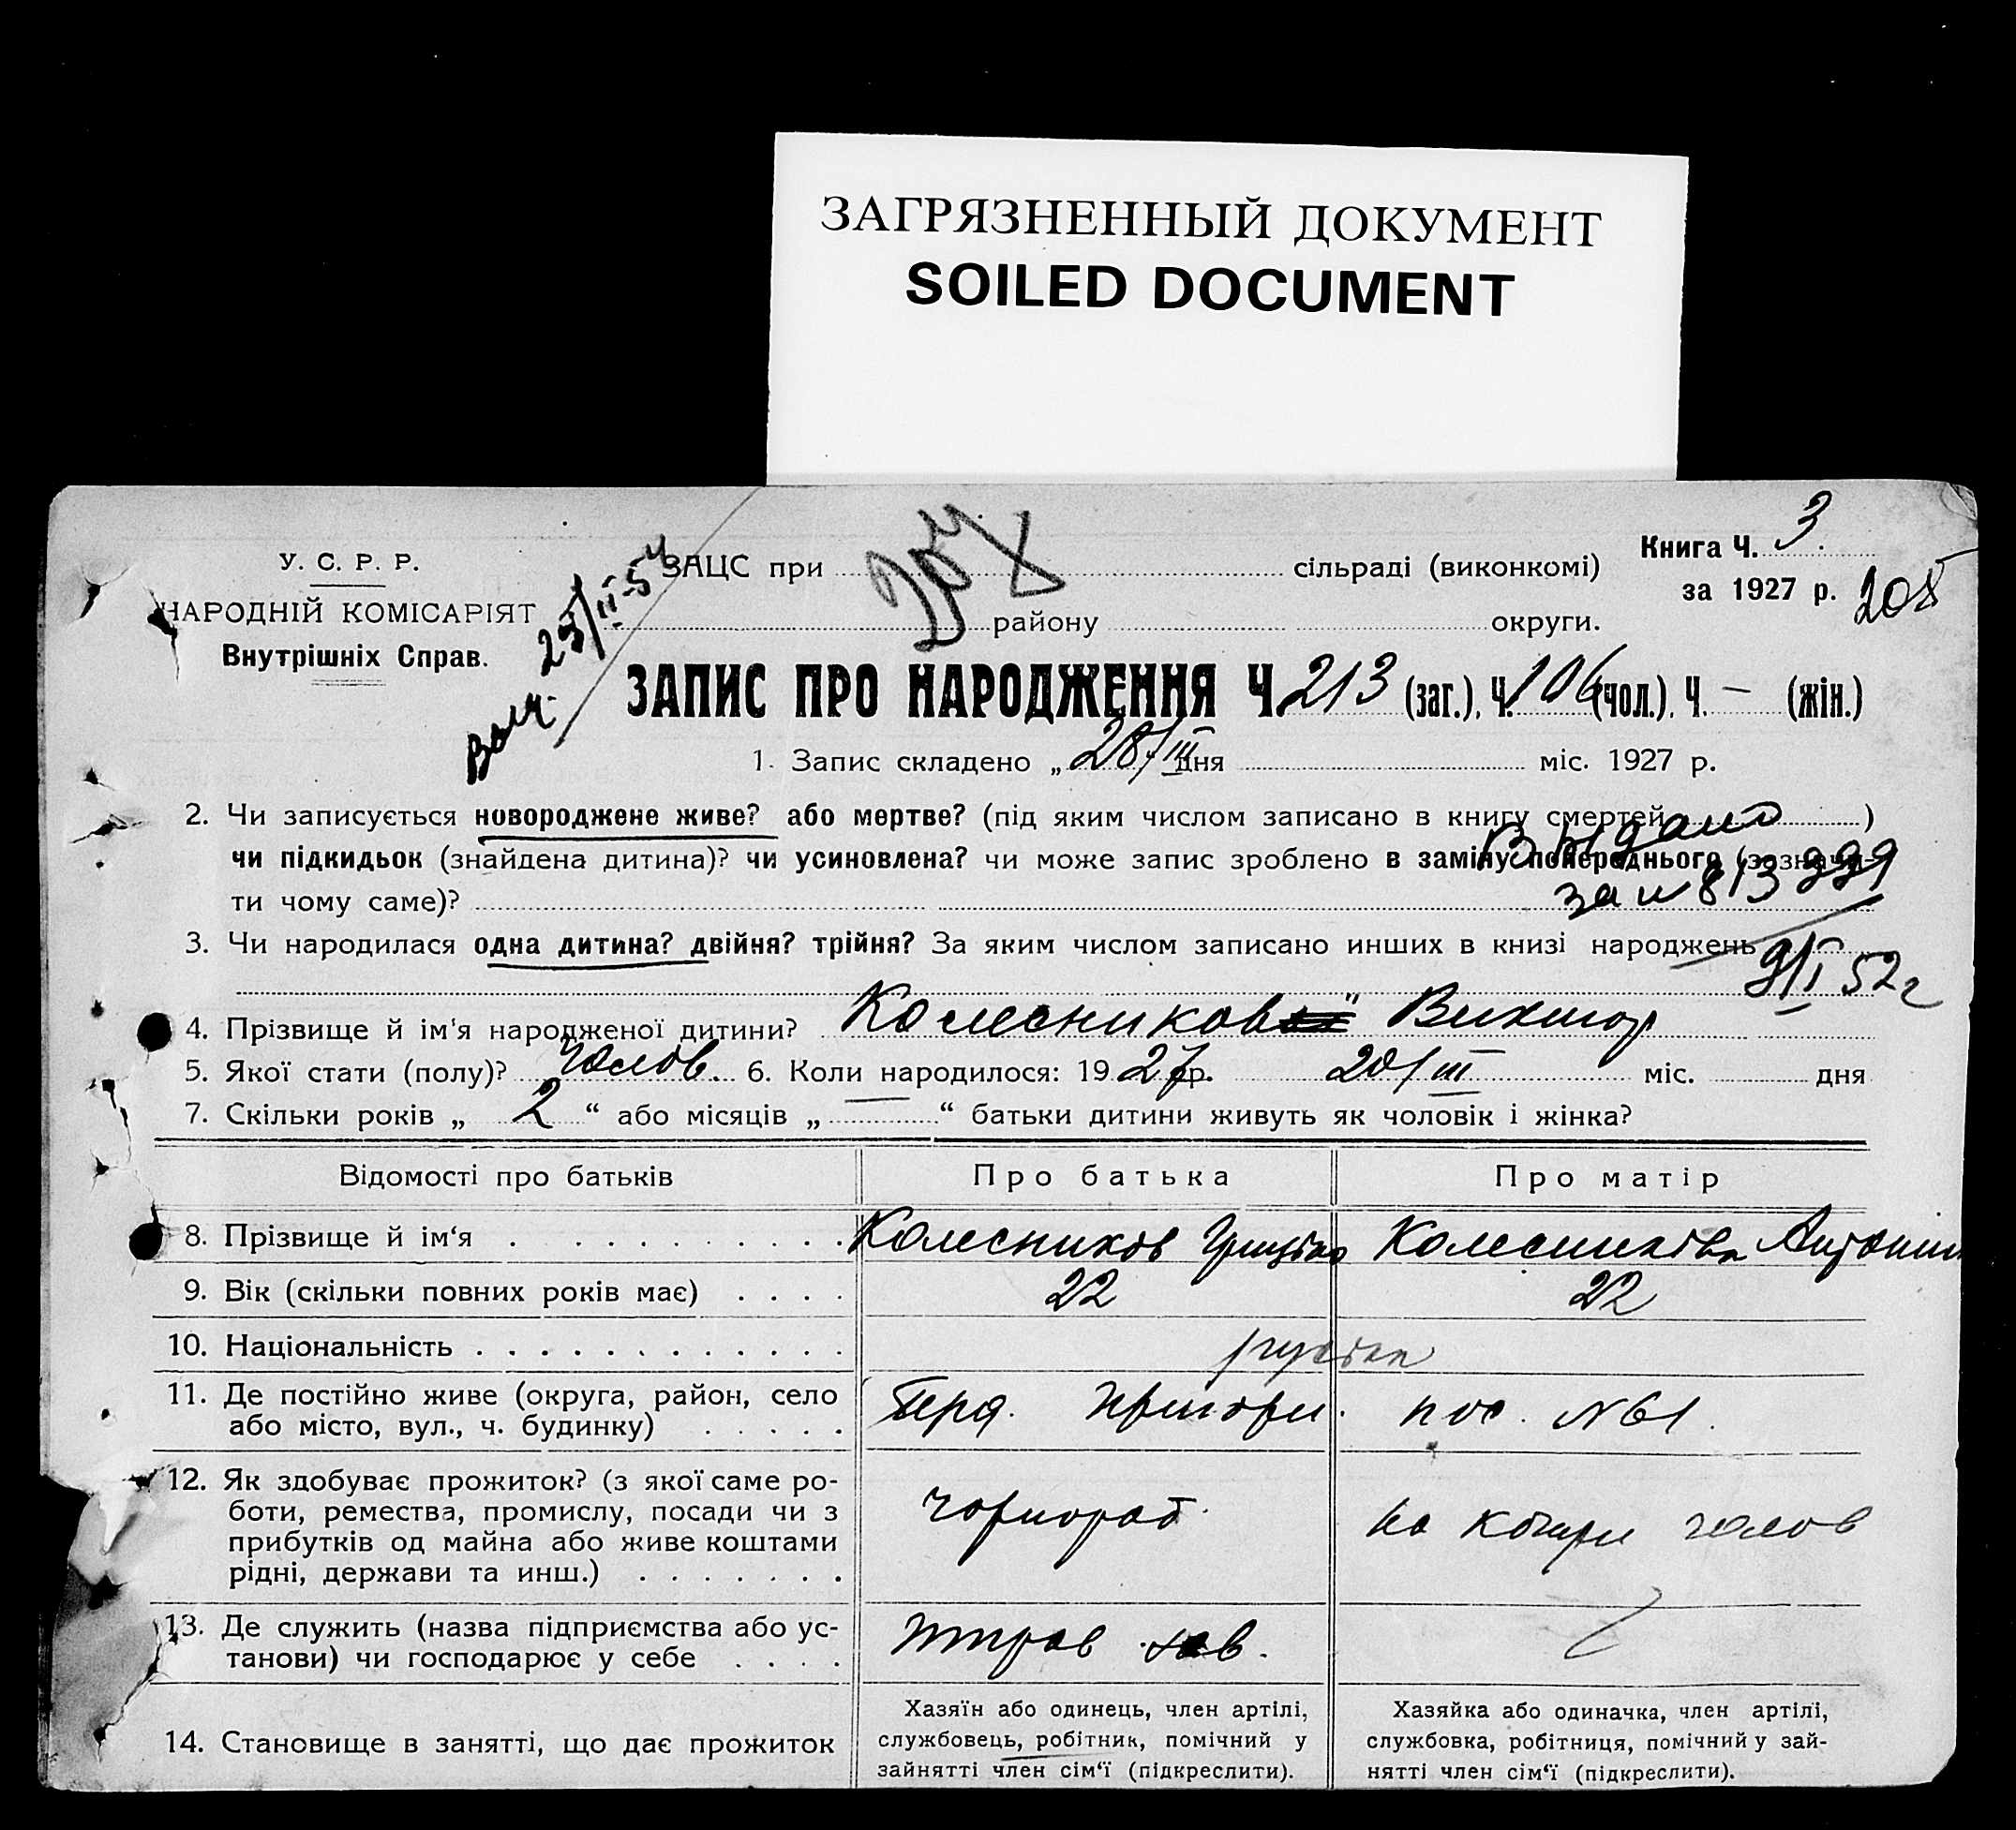 ЗАГРЯЗНЕННЫЙ ДОКУМЕНТ
SOILED DOCUMENT
Книга Ч. 3
за 1927 р. 208
У. С. Р. Р.
НАРОДНІЙ КОМІСАРІЯТ
Внутрішніх Справ.
ЗАЦС при сільраді (виконкомі)
району округи.
204
ЗАПИС ПРО НАРОДЖЕННЯ Ч. 213 (заг.), Ч. 106 (чол.), Ч. — (жін.)
1. Запис складено „ 28/III дня міс. 1927 р.
2. Чи записується новороджене живе? або мертве? (під яким числом записано в книгу смертей )
чи підкидьок (знайдена дитина)? чи усиновлена? чи може запис зроблено в заміну попереднього (зазначи-
ти чому саме)?
Выдано
за № 813
3. Чи народилася одна дитина? двійня? трійня? За яким числом записано инших в книзі народжень
9/I 52г
4. Прізвище й ім'я народженої дитини? Колесников Виктор
5. Якої стати (полу)? Чолов. 6. Коли народилося: 1927р. 20/III міс. дня
7. Скільки років „ 2 “ або місяців „ — “ батьки дитини живуть як чоловік і жінка?
Відомості про батьків Про батька Про матір
8. Прізвище й ім‘я Колесников Колесникова
9. Вік (скільки повних років має) 22 22
10. Національність
11. Де постійно живе (округа, район, село
або місто, вул., ч. будинку) пос. №61.
12. Як здобуває прожиток? (з якої саме ро-
боти, ремества, промислу, посади чи з
прибутків од майна або живе коштами
рідні, держави та инш.)
чорнороб. на кошти чолов
13. Де служить (назва підприємства або ус-
танови) чи господарює у себе
14. Становище в занятті, що дає прожиток
Хазяїн або одинець, член артілі,
службовець, робітник, помічний у
зайнятті член сім‘ї (підкреслити).
Хазяйка або одиначка, член артілі,
службовка, робітниця, помічний у зай-
нятті член сім‘ї (підкреслити).